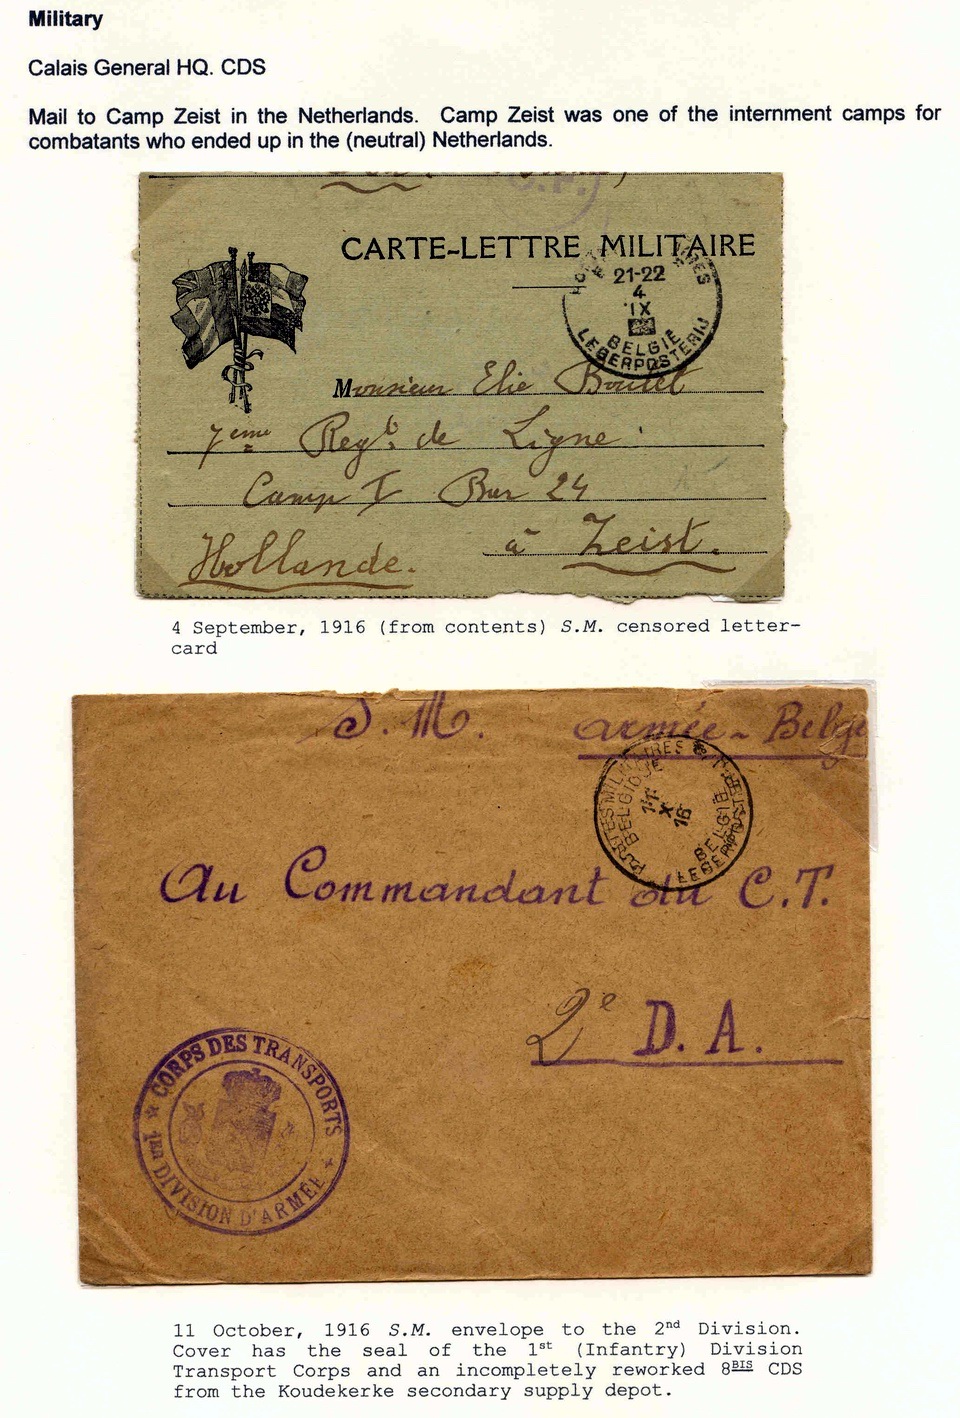 Military
Calais General HQ. CDS
Mail to Camp Zeist in the Netherlands. Camp Zeist was one of the internment camps for
combatants who ended up in the (neutral) Netherlands.
CARTE-LETTRE MILITAIRE
21-22
4
IX
BELGIË
LEGERPOSTERIJ
Monsieur Elie Boutet
7eme Regt. de Ligne
Camp I Bar 24
à Zeist.
Hollande.
4 September, 1916 (from contents) S.M. censored letter-
card
S. M. armée - Belge
POSTES MILITAIRES
BELGIQUE
11
X
16
BELGIË
LEGERPOST
Au Commandant du C.T.
2e D. A.
CORPS DES TRANSPORTS
1ER DIVISION D'ARMÉE
11 October, 1916 S.M. envelope to the 2nd Division.
Cover has the seal of the 1st (Infantry) Division
Transport Corps and an incompletely reworked 8BIS CDS
from the Koudekerke secondary supply depot.